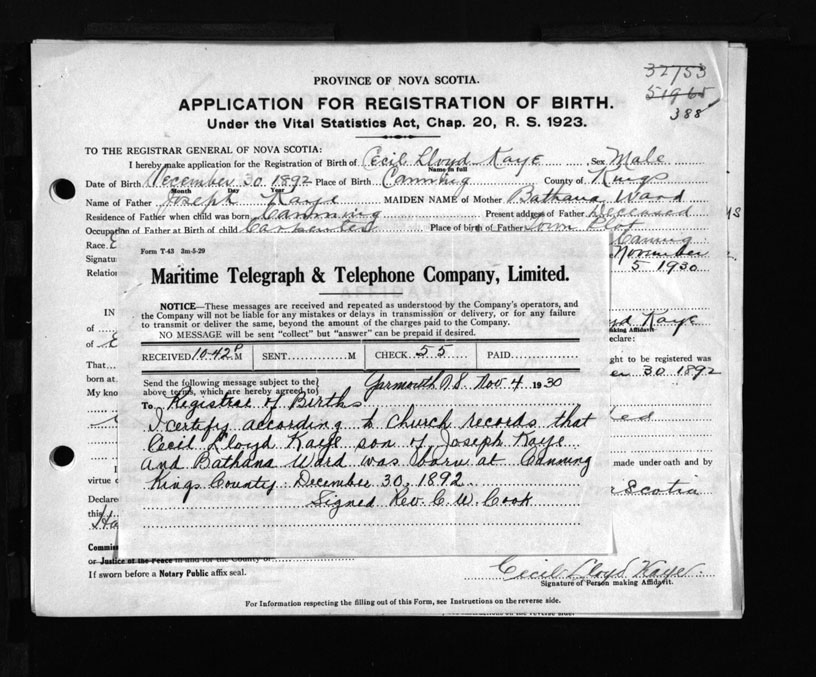 PROVINCE OF NOVA SCOTIA.
32753
51965
388
APPLICATION FOR REGISTRATION OF BIRTH.
Under the Vital Statistics Act, Chap. 20, R. S. 1923.
TO THE REGISTRAR GENERAL OF NOVA SCOTIA:
I hereby make application for the Registration of Birth of Cecil Lloyd Kaye Sex Male
Name in full
Date of Birth December 30 1892 Place of Birth Canning County of Kings
Month Day Year
Name of Father Joseph Kaye MAIDEN NAME of Mother Bathana Ward
Residence of Father when child was born Canning Present address of Father Deceased
Occupation of Father at Birth of child Carpenter Place of birth of Father
Race. Canning
Signatu November
Relation 5 1930
Form T-43 3m-5-29
Maritime Telegraph & Telephone Company, Limited.
NOTICE—These messages are received and repeated as understood by the Company's operators, and
the Company will not be liable for any mistakes or delays in transmission or delivery, or for any failure
to transmit or deliver the same, beyond the amount of the charges paid to the Company.
NO MESSAGE will be sent "collect" but "answer" can be prepaid if desired.
RECEIVED 10-42 P M SENT M CHECK 55 PAID
Send the following message subject to the
above terms, which are hereby agreed to
Yarmouth N.S. Nov. 4 1930
To Registrar of Births
I certify according to church records that
Cecil Lloyd Kaye son of Joseph Kaye
and Bathana Ward was born at Canning
Kings County December 30, 1892.
Signed Rev. C. W. Cook
IN
of
of
That
born at
My kno
yd Kaye
aking Affidavit
eclare:
ght to be registered was
er 30 1892
I made under oath and by
virtue o
Declare Scotia
this
Ha
Commis
or Justice of the Peace in and for the County of
If sworn before a Notary Public affix seal.
Cecil Lloyd Kaye
Signature of Person making Affidavit.
For Information respecting the filling out of this Form, see Instructions on the reverse side.